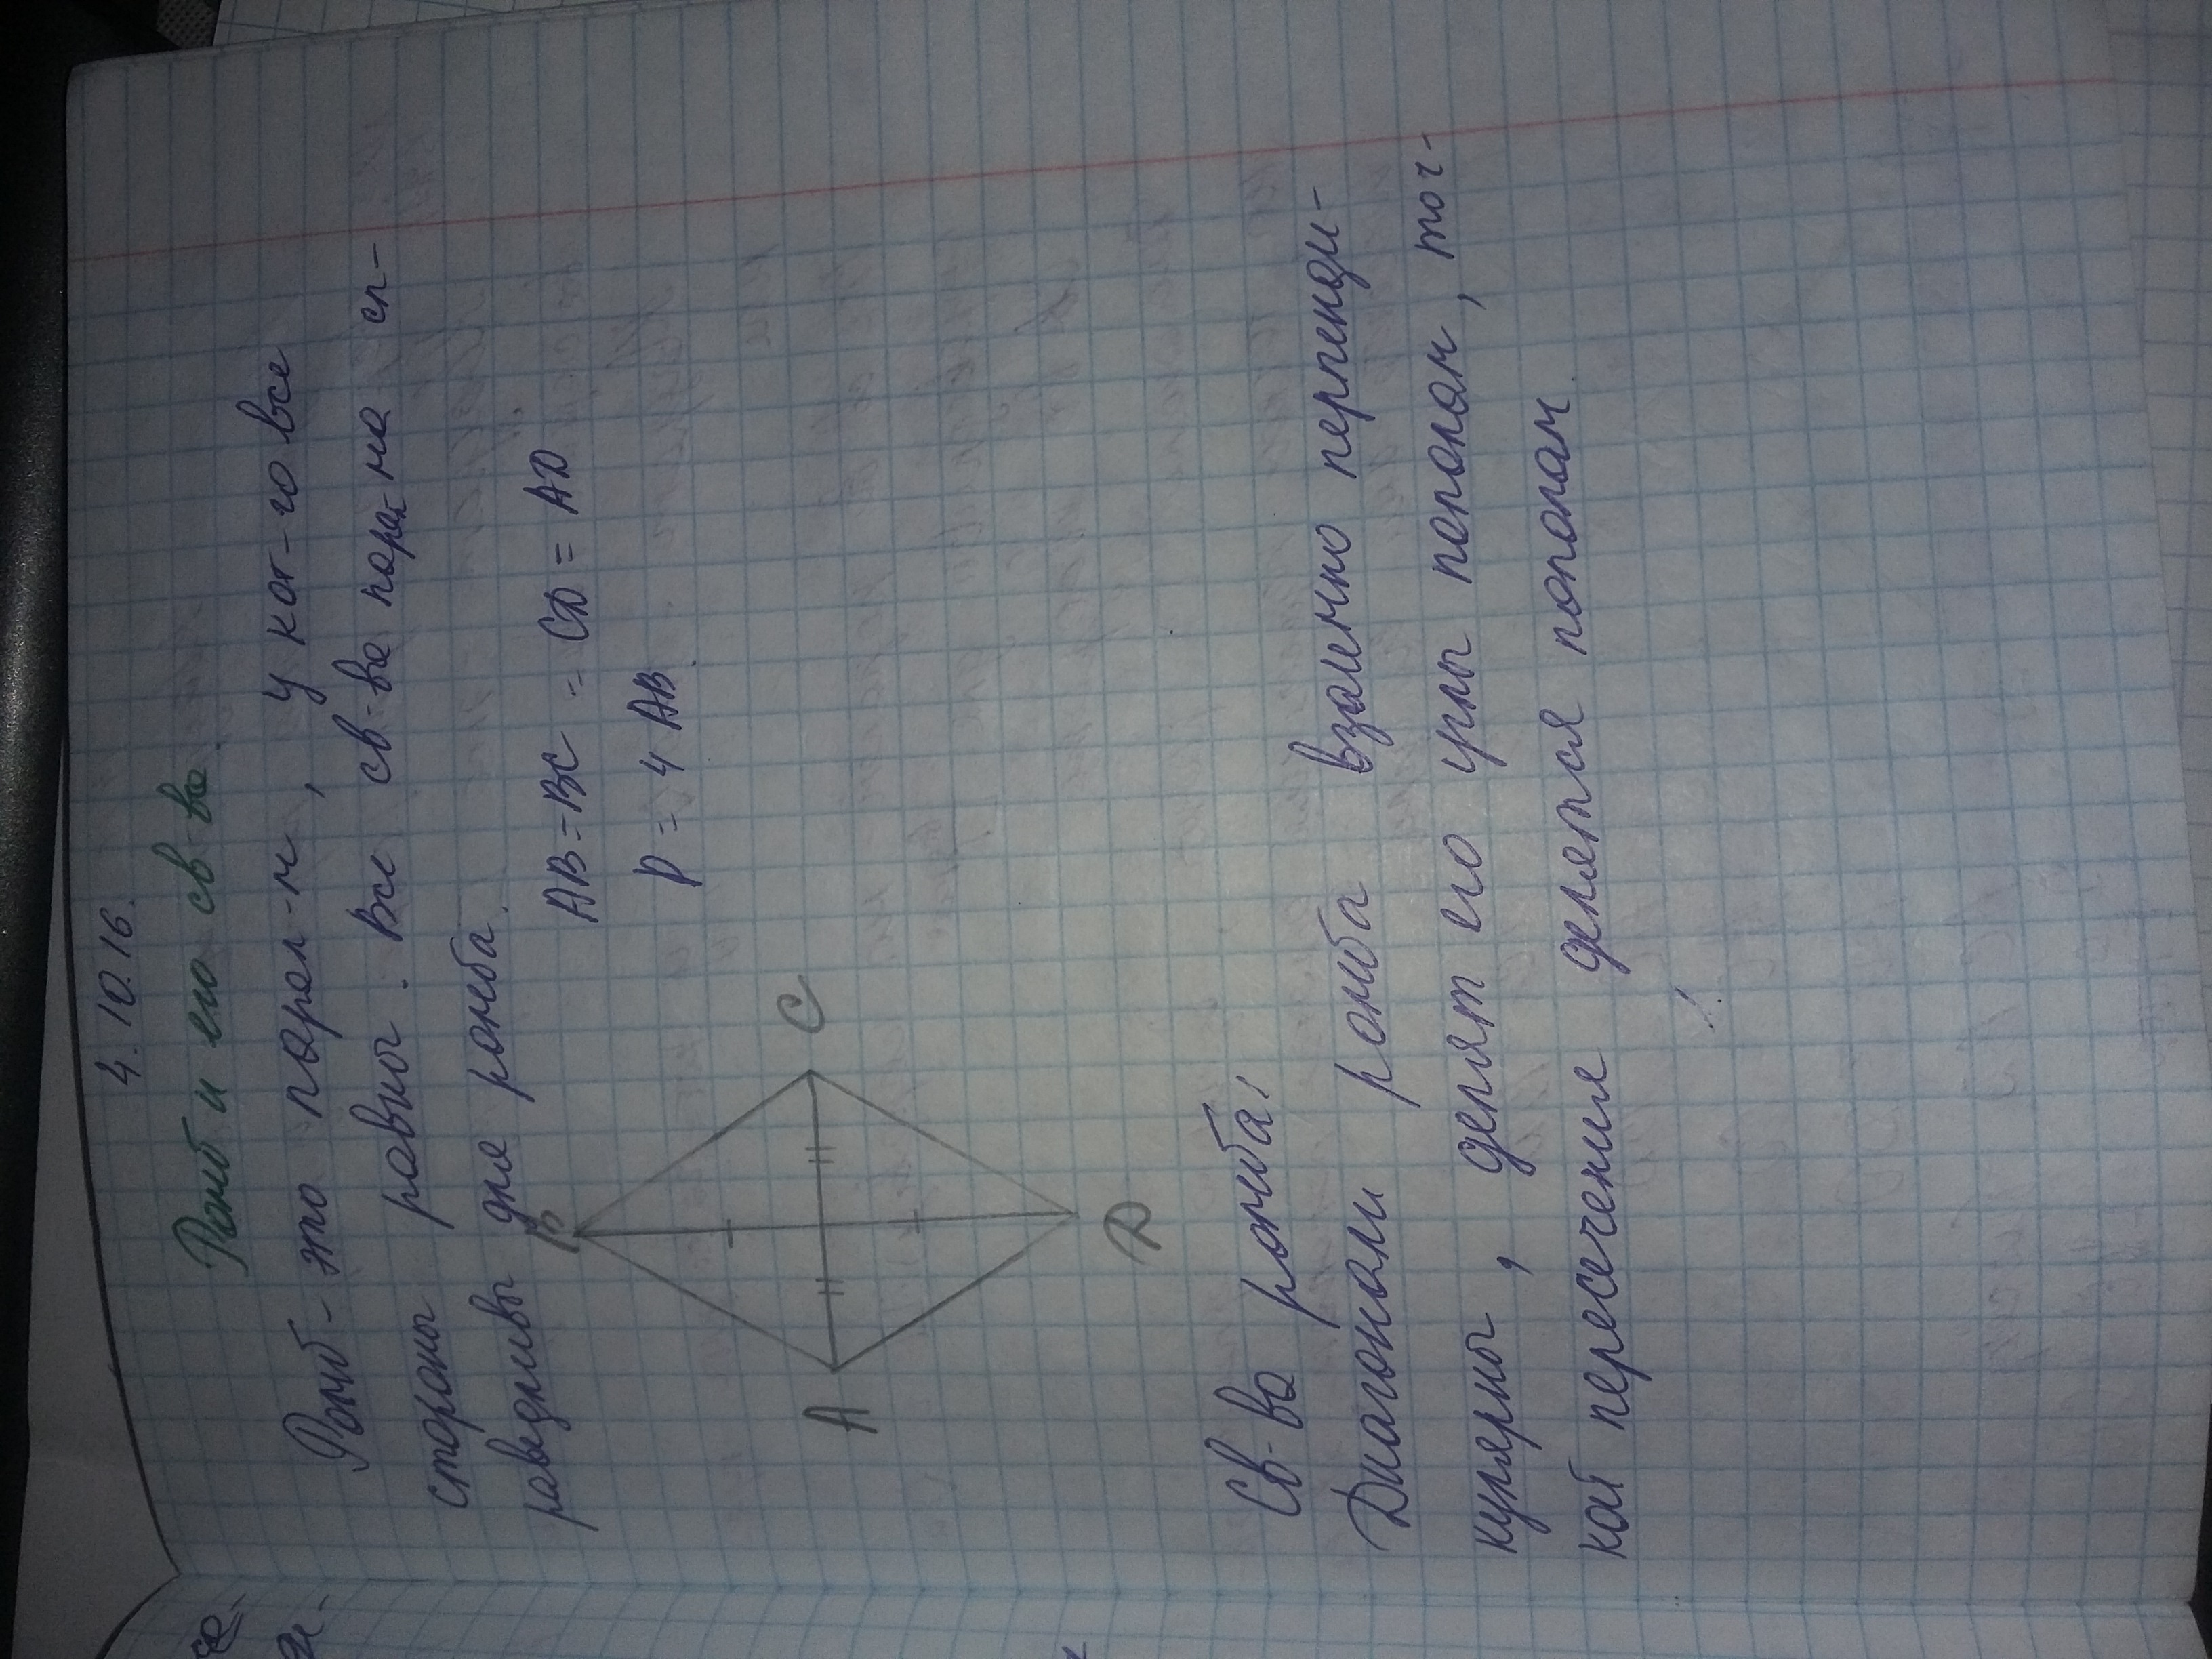 4. 10. 16.
Ромб и его св-ва.
Ромб - это парал-м, у кот-го все
стороны равны. Все св-ва парал-ма сп-
раведливы для ромба.
B
AB = BC = CD = AD
P = 4 AB
A
C
D
Св-ва ромба:
Диагонали ромба взаимно перпенди-
кулярны, делят его углы пополам, точ-
кой пересечения делятся пополам